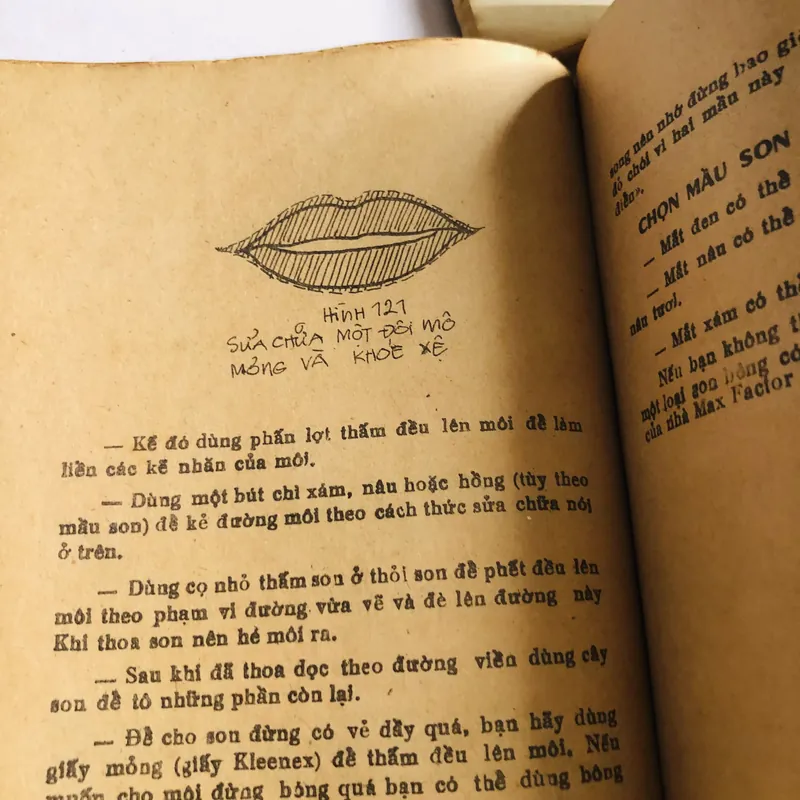 HÌNH 121
SỬA CHỮA MỘT ĐÔI MÔ
MỎNG VÀ KHOÉ XỆ
— Kế đó dùng phấn lợt thấm đều lên môi đề làm
liền các kẽ nhăn của môi.
— Dùng một bút chì xám, nâu hoặc hồng (tùy theo
mầu son) đề kẻ đường môi theo cách thức sửa chữa nói
ở trên.
— Dùng cọ nhỏ thấm son ở thỏi son đề phết đều lên
môi theo phạm vi đường vừa vẽ và đè lên đường này
Khi thoa son nên hé môi ra.
— Sau khi đã thoa dọc theo đường viền dùng cây
son đề tô những phần còn lại.
— Đề cho son đừng có vẻ dầy quá, bạn hãy dùng
giấy mỏng (giấy Kleenex) đề thấm đều lên môi. Nếu
muốn cho môi đừng bóng quá bạn có thề dùng bông
song nên nhớ đừng bao giờ
đỏ chói vì hai mầu này
điền».
CHỌN MÀU SON
— Mắt đen có thề
— Mắt nâu có thề
nâu tươi.
— Mắt xám có thề
Nếu bạn không
một loại son bóng có
của nhà Max Factor